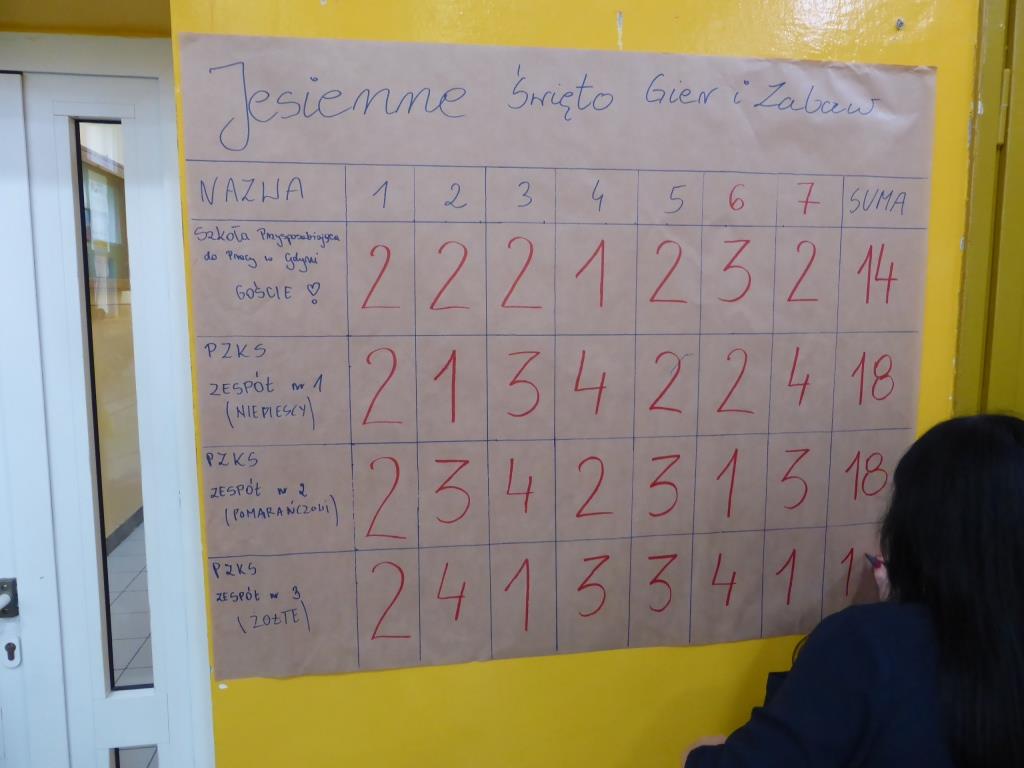 Jesienne Święto Gier i Zabaw
NAZWA 1 2 3 4 5 6 7 SUMA
Szkoła Przysposabiająca
do Pracy w Gdyni
GOŚCIE ♡!
2 2 2 1 2 3 2 14
PZKS
ZESPÓŁ nr 1
(NIEBIESCY)
2 1 3 4 2 2 4 18
PZKS
ZESPÓŁ nr 2
(POMARAŃCZOWI)
2 3 4 2 3 1 3 18
PZKS
ZESPÓŁ nr 3
(ŻÓŁTE)
2 4 1 3 3 4 1 1